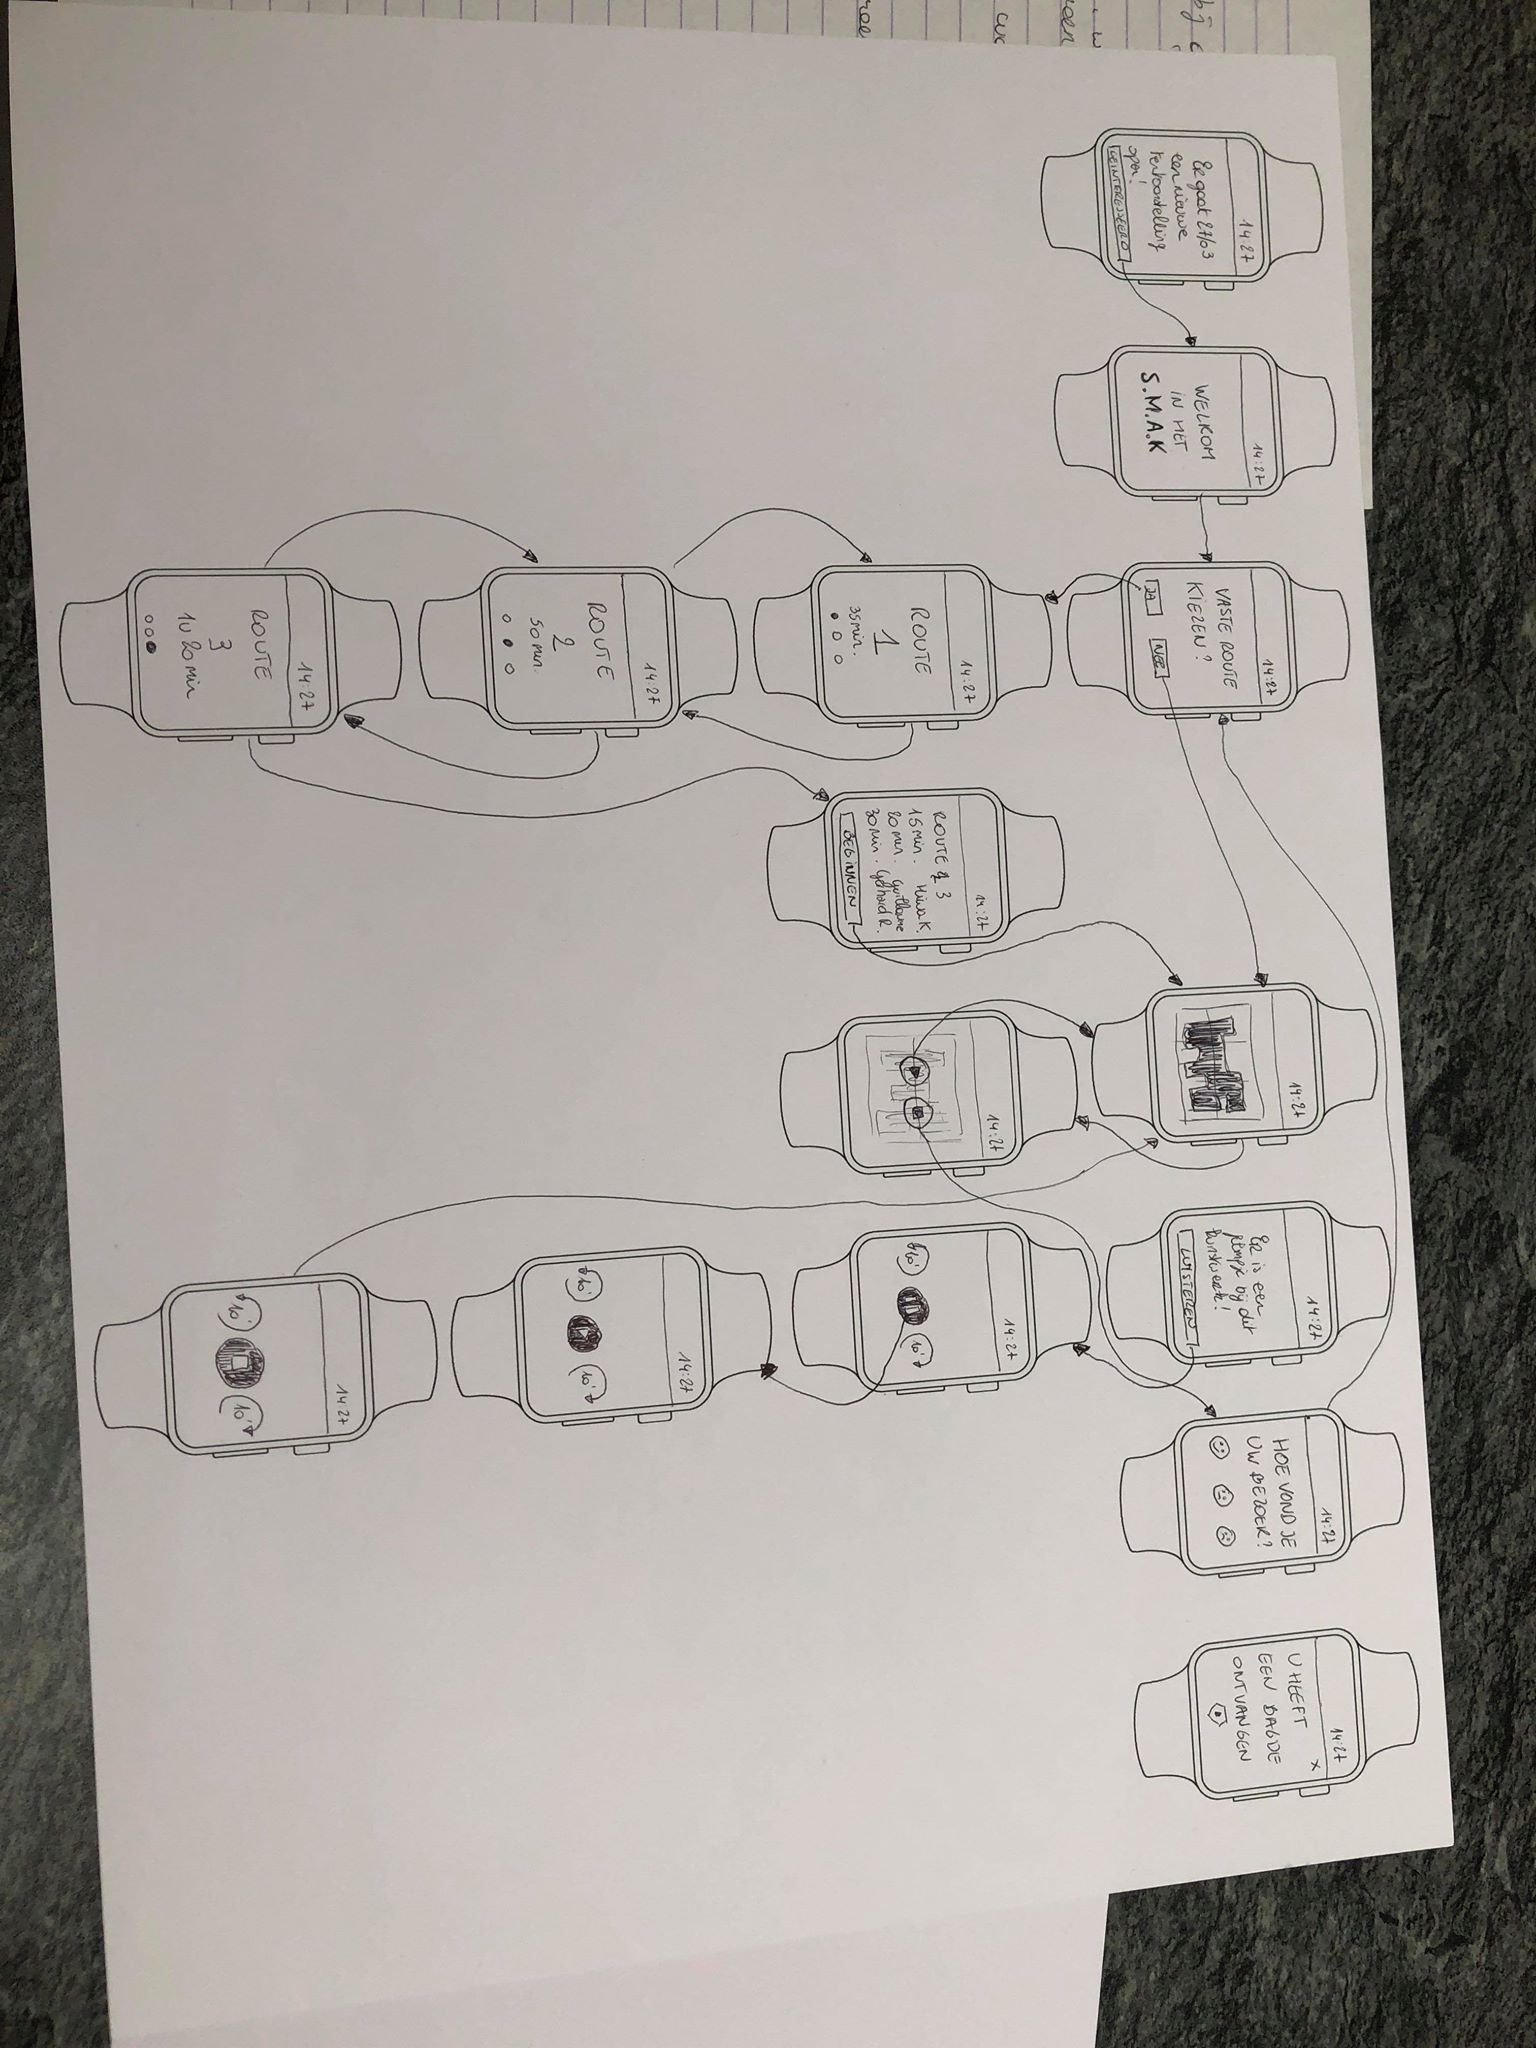 14:27
Er gaat 27/03
een nieuwe
tentoonstelling
open!
GEINTERESSEERD
14:27
WELKOM
IN HET
S.M.A.K
14:27
VASTE ROUTE
KIEZEN?
JA
NEE
14:27
ROUTE
1
35min.
14:27
ROUTE
2
50min.
14:27
ROUTE
3
1u 20min
14:27
ROUTE 3
15min. Hiwa K.
20min. Guillaume
30min. Gerhard R.
BEGINNEN
14:27
14:27
14:27
Er is een
filmpje bij dit
kunstwerk!
LUISTEREN
14:27
10'
10'
14:27
10'
10'
14:27
10'
10'
14:27
HOE VOND JE
UW BEZOEK?
14:27
X
U HEEFT
EEN BAGDE
ONTVANGEN